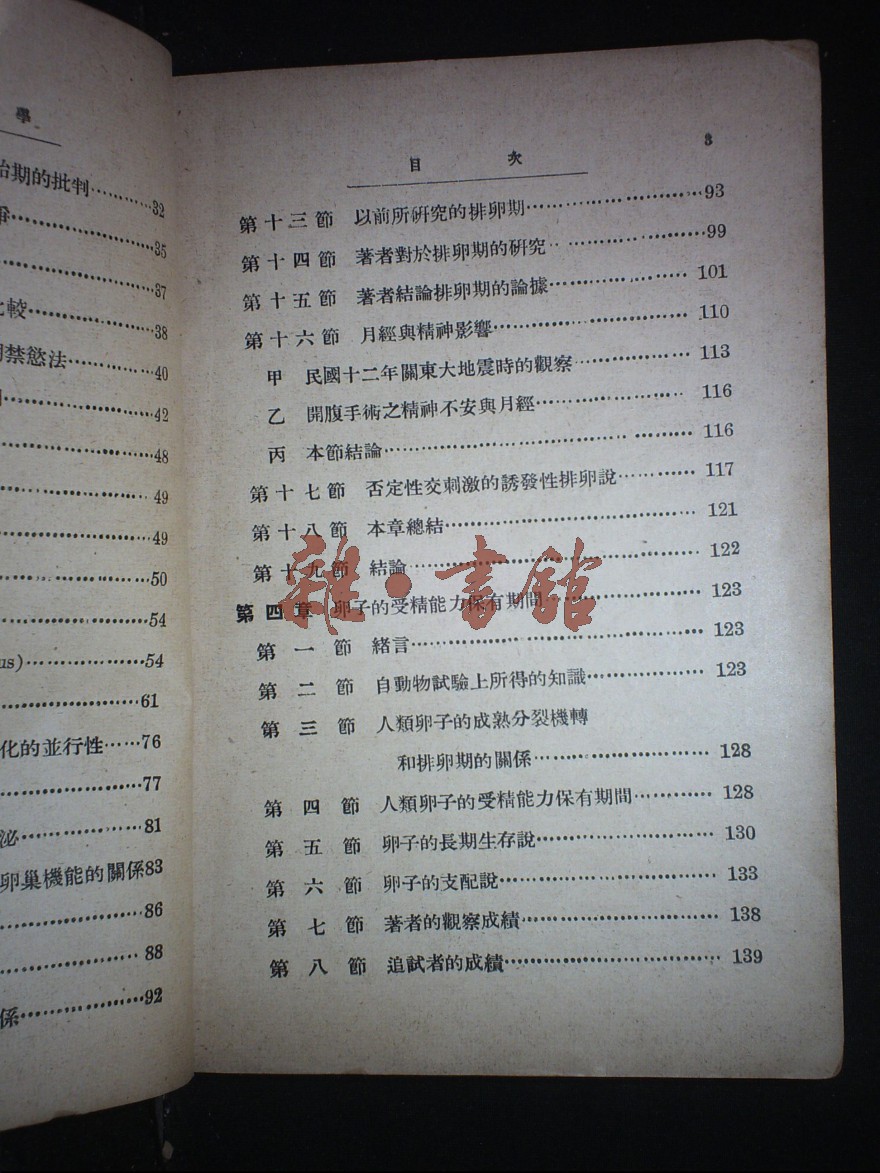 學
期的批判……………32
35
37
較……………38
禁慾法……………40
42
48
49
49
50
54
us)……………54
61
化的並行性……76
77
泌……………81
卵巢機能的關係83
86
88
係……………92
目 次
3
第十三節 以前所研究的排卵期……………93
第十四節 著者對於排卵期的研究……………99
第十五節 著者結論排卵期的論據……………101
第十六節 月經與精神影響……………110
甲 民國十二年關東大地震時的觀察……………113
乙 開腹手術之精神不安與月經……………116
丙 本節結論……………116
第十七節 否定性交刺激的誘發性排卵說……………117
第十八節 本章總結……………121
第十九節 結論……………122
第四章 卵子的受精能力保有期間……………123
第一節 緒言……………123
第二節 自動物試驗上所得的知識……………123
第三節 人類卵子的成熟分裂機轉
和排卵期的關係……………128
第四節 人類卵子的受精能力保有期間……………128
第五節 卵子的長期生存說……………130
第六節 卵子的支配說……………133
第七節 著者的觀察成績……………138
第八節 追試者的成績……………139
雜·書館